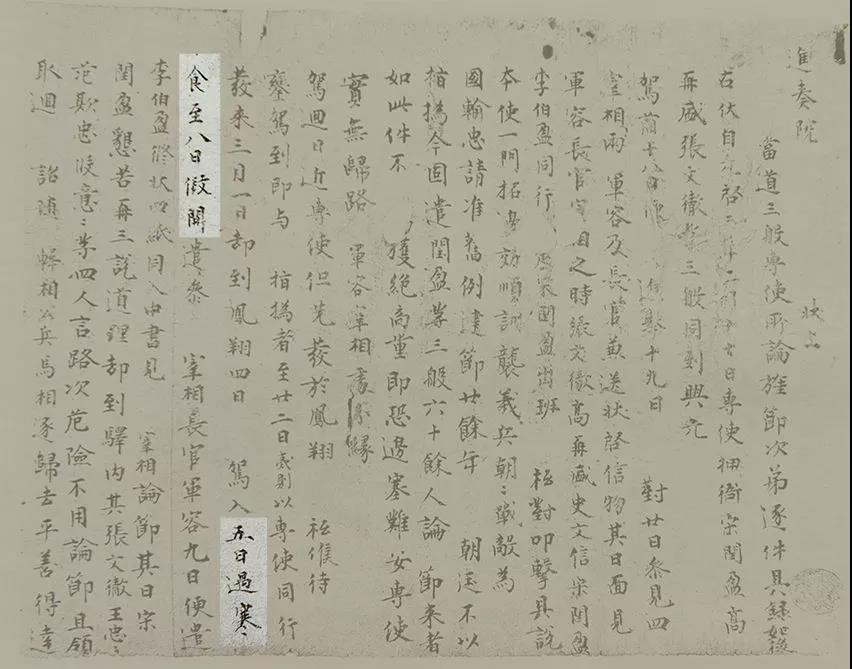 進奏院　狀上
當道三般專使所論旌節次第逐件具錄如後
右伏自光啓三年二月十七日專使押衙宋閏盈高
再盛張文徹等三般同到興元
駕前十八日使　進奉十九日　對廿日參見四
宰相兩軍容及長官兼送狀啓信物其日面見
軍容長官宰相之時張文徹高再盛史文信宋閏盈
李伯盈同行　宋閏盈出班　祗對叩擊具說
本使一門拓邊効順訓襲義兵朝〻戰敵為
國輸忠請准舊例建節廿餘年　朝廷不以
指撝今因遣閏盈等三般六十餘人論節來者
如此件不　獲絕商量即恐邊塞難安專使
實無歸路　軍容宰相處分緣
駕迴日近專使但先發於鳳翔　祗候待
鑾駕到即與　指撝者至廿二日夜剋以專使同行
發來三月一日却到鳳翔四日　駕入五日遇寒
食至八日假開遣參　宰相長官軍容九日便遣
李伯盈修狀四紙同入中書見　宰相論節其日宋
閏盈懇苦再三說道理却到驛內其張文徹王忠〻
范欺忠段意〻等四人言路次危險不用論節且領
取迴　詔隨　韓相公兵馬相逐歸去平善得達